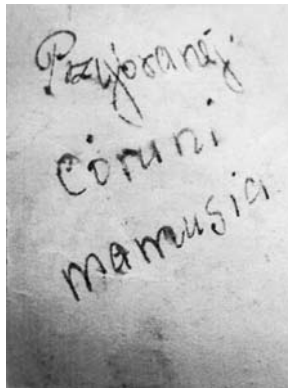 Przybranéj
córuni
mamusia